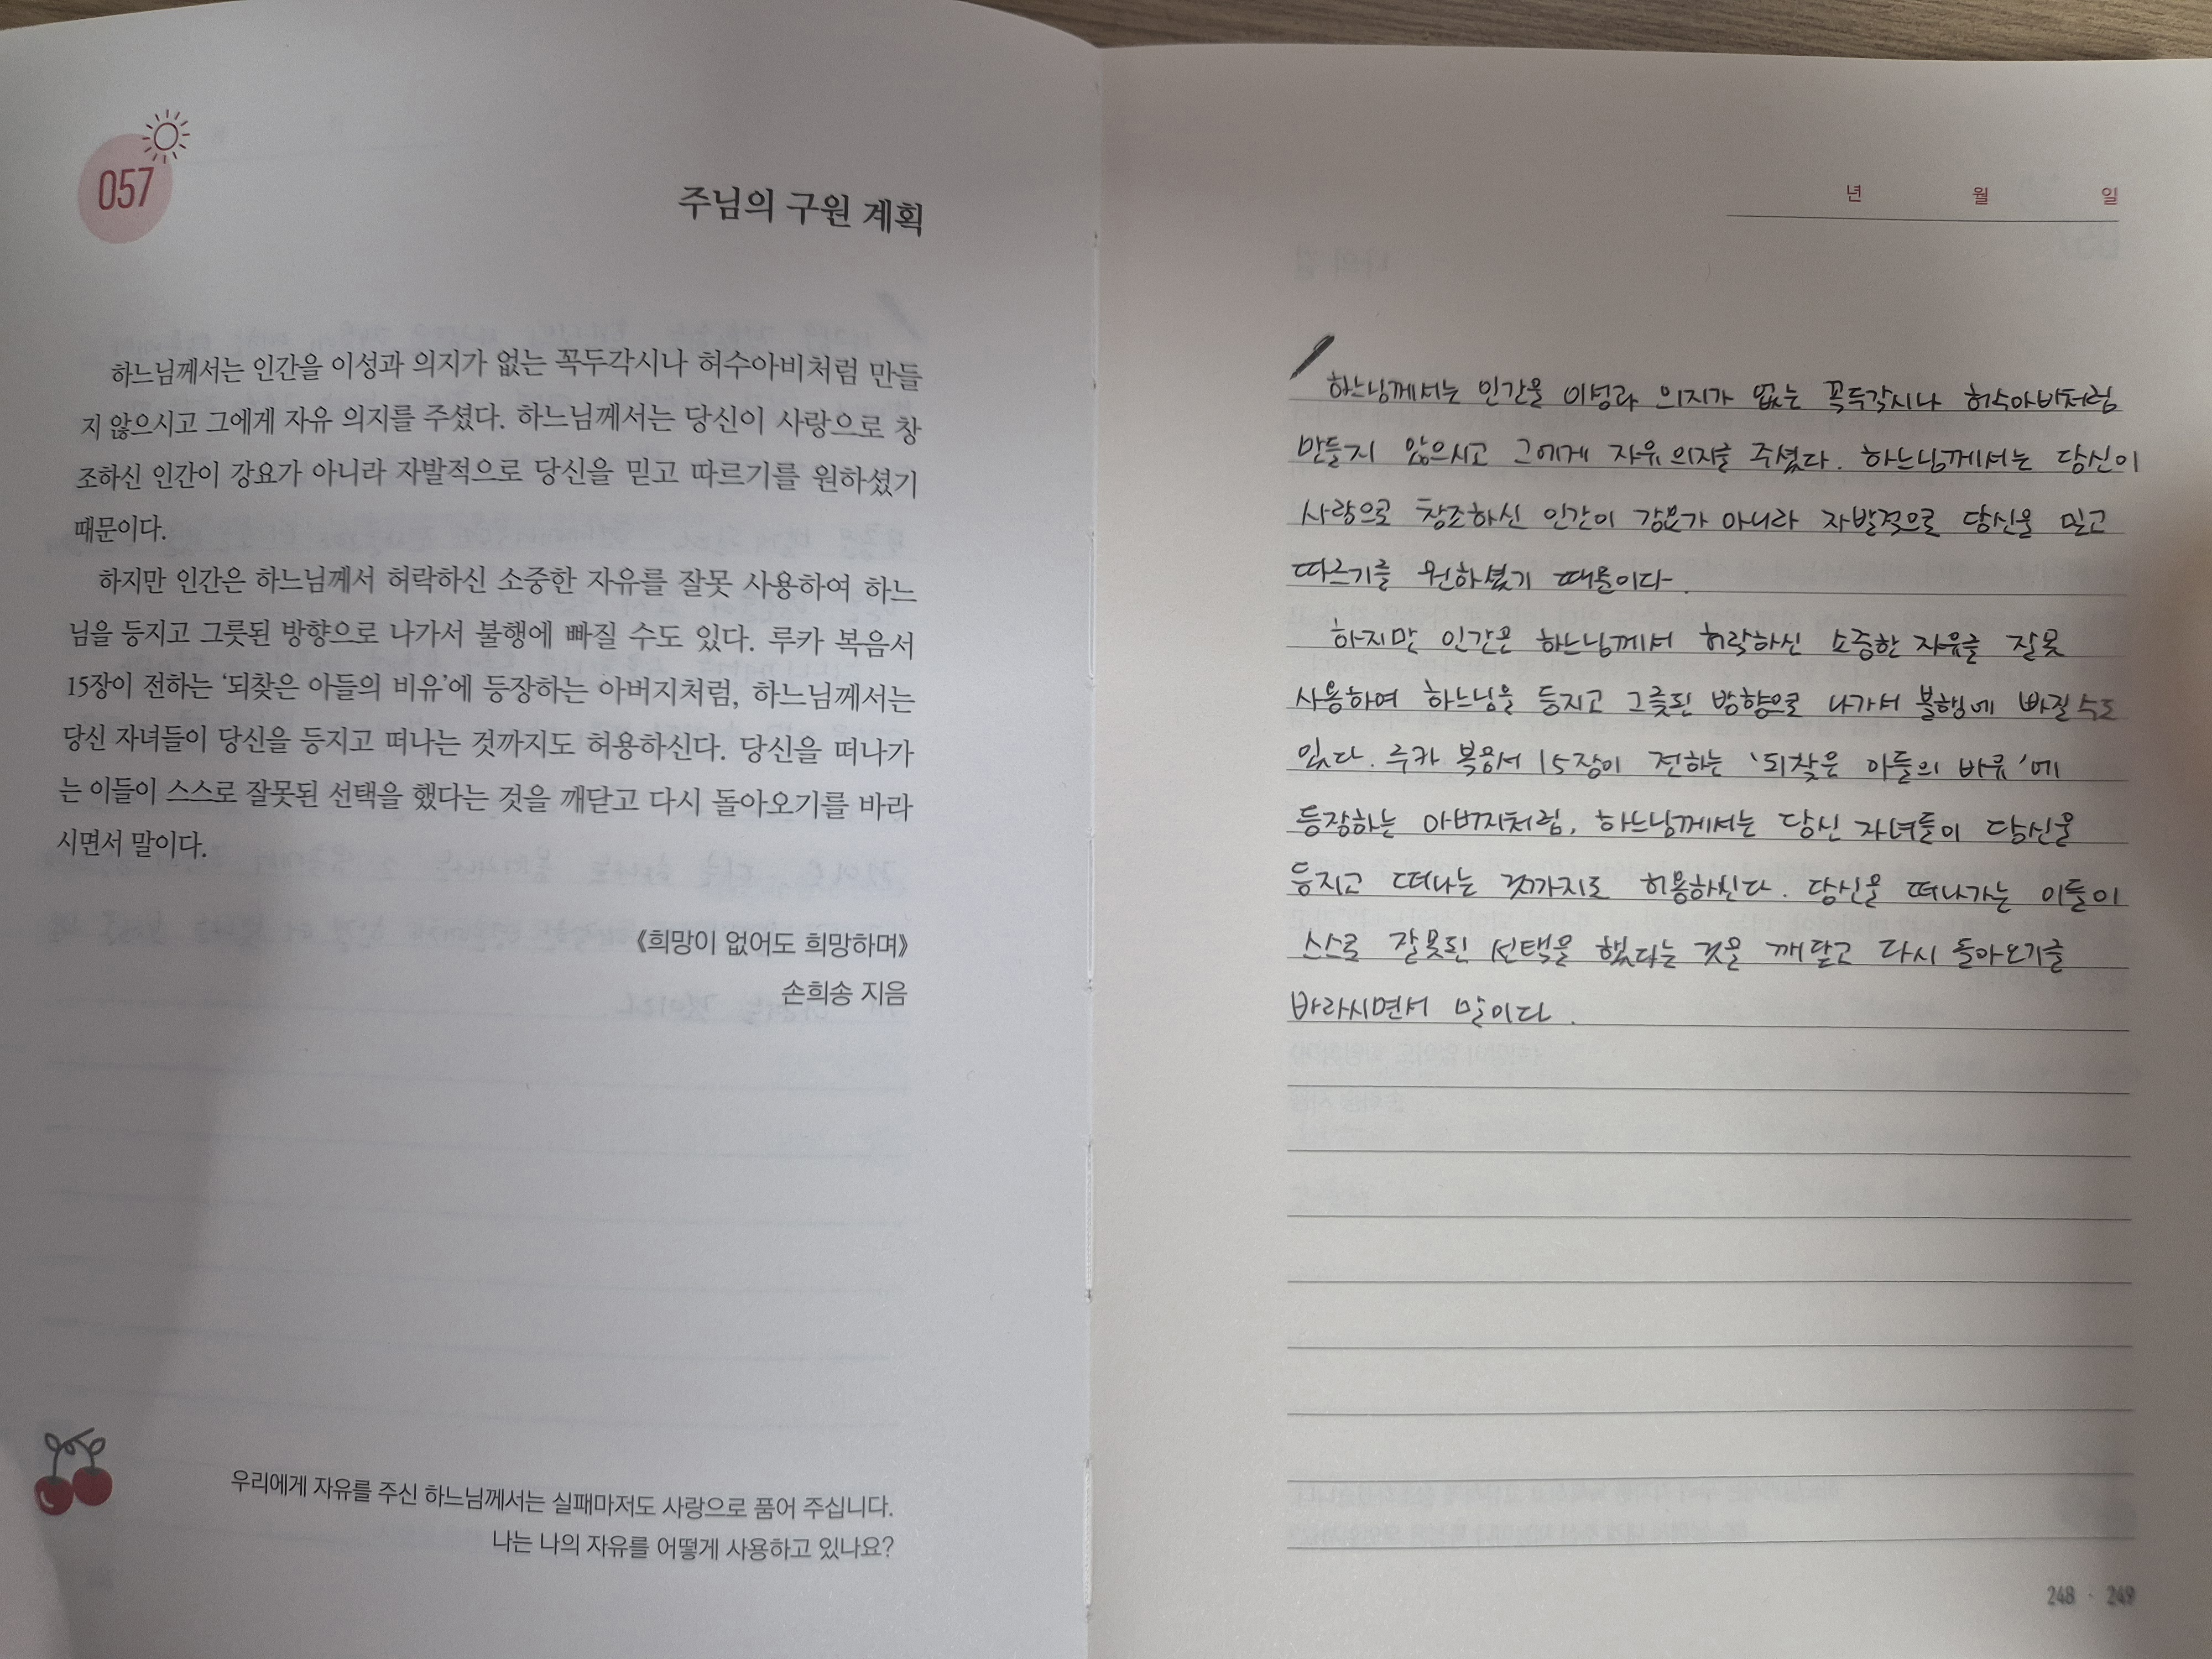 057
주님의 구원 계획
하느님께서는 인간을 이성과 의지가 없는 꼭두각시나 허수아비처럼 만들
지 않으시고 그에게 자유 의지를 주셨다. 하느님께서는 당신이 사랑으로 창
조하신 인간이 강요가 아니라 자발적으로 당신을 믿고 따르기를 원하셨기
때문이다.
하지만 인간은 하느님께서 허락하신 소중한 자유를 잘못 사용하여 하느
님을 등지고 그릇된 방향으로 나가서 불행에 빠질 수도 있다. 루카 복음서
15장이 전하는 ‘되찾은 아들의 비유’에 등장하는 아버지처럼, 하느님께서는
당신 자녀들이 당신을 등지고 떠나는 것까지도 허용하신다. 당신을 떠나가
는 이들이 스스로 잘못된 선택을 했다는 것을 깨닫고 다시 돌아오기를 바라
시면서 말이다.
《희망이 없어도 희망하며》
손희송 지음
우리에게 자유를 주신 하느님께서는 실패마저도 사랑으로 품어 주십니다.
나는 나의 자유를 어떻게 사용하고 있나요?
년 월 일
하느님께서는 인간을 이성과 의지가 없는 꼭두각시나 허수아비처럼
만들지 않으시고 그에게 자유 의지를 주셨다. 하느님께서는 당신이
사랑으로 창조하신 인간이 강요가 아니라 자발적으로 당신을 믿고
따르기를 원하셨기 때문이다.
하지만 인간은 하느님께서 허락하신 소중한 자유를 잘못
사용하여 하느님을 등지고 그릇된 방향으로 나가서 불행에 빠질 수도
있다. 루카 복음서 15장이 전하는 '되찾은 아들의 비유'에
등장하는 아버지처럼, 하느님께서는 당신 자녀들이 당신을
등지고 떠나는 것까지도 허용하신다. 당신을 떠나가는 이들이
스스로 잘못된 선택을 했다는 것을 깨닫고 다시 돌아오기를
바라시면서 말이다.
248 · 249